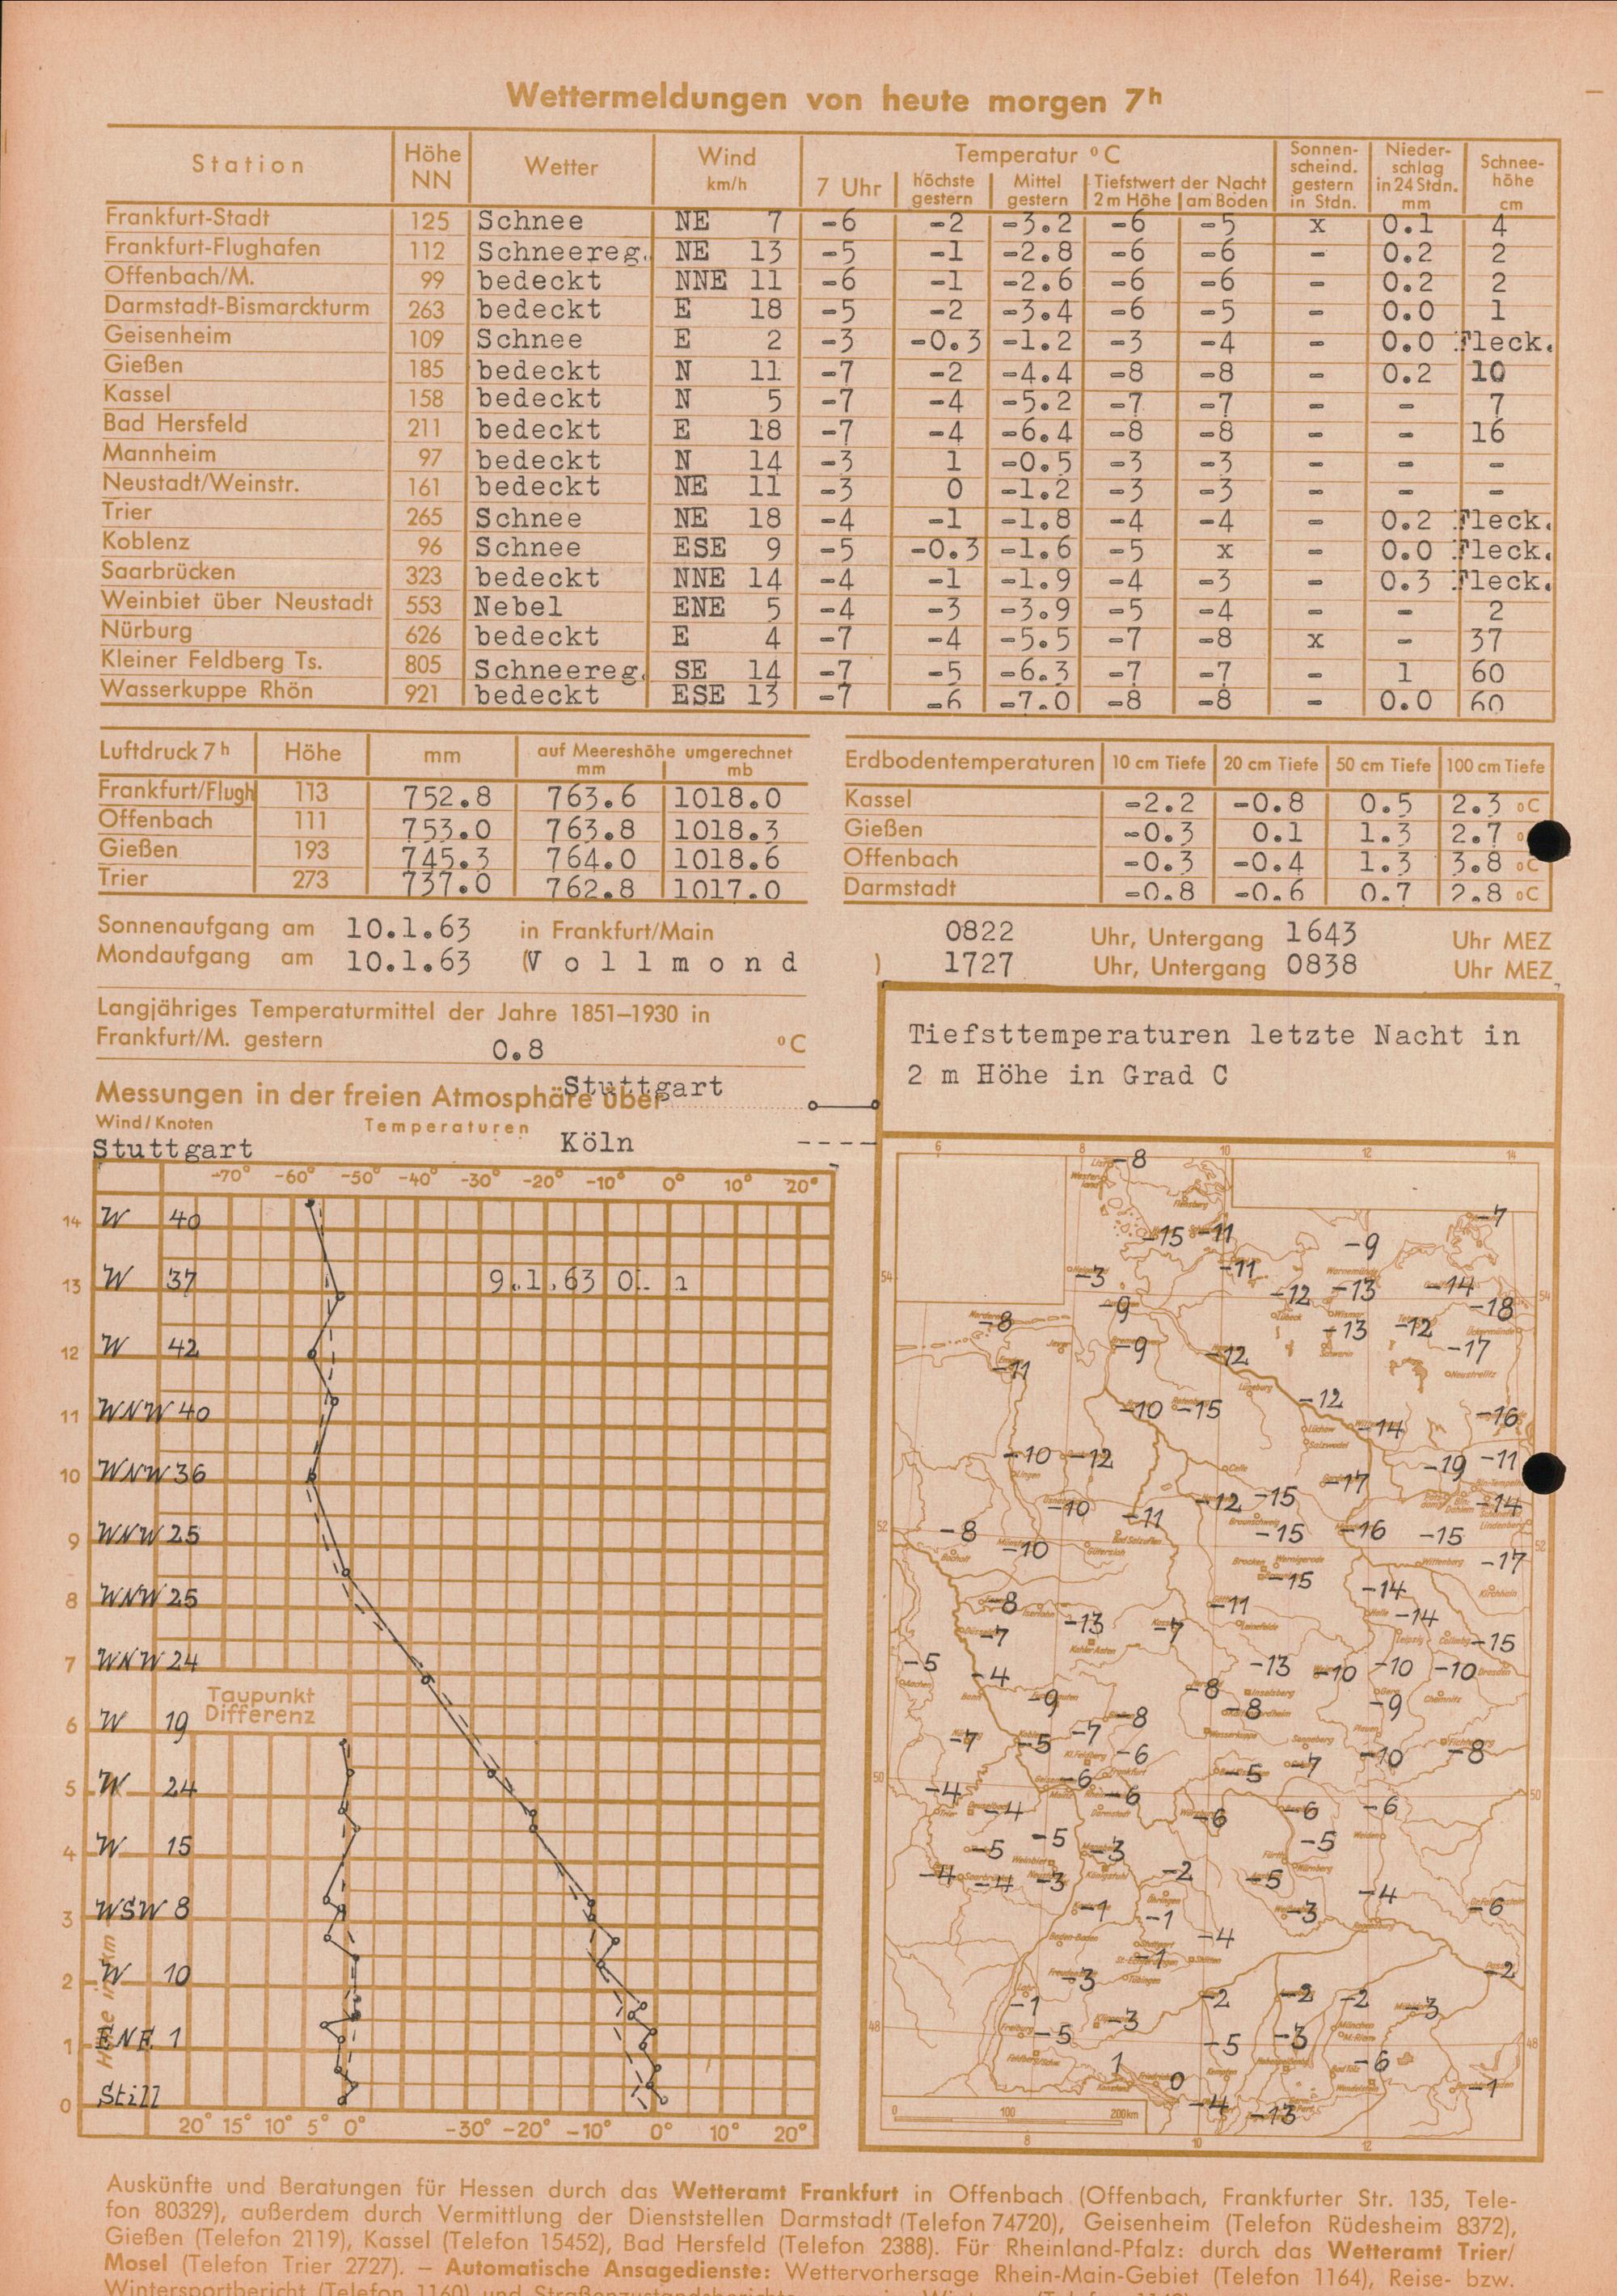 Wettermeldungen von heute morgen 7h
Station Höhe NN Wetter Wind km/h Temperatur °C Sonnenscheind. gestern in Stdn. Niederschlag in 24 Stdn. mm Schneehöhe cm
7 Uhr höchste gestern Mittel gestern Tiefstwert der Nacht 2 m Höhe am Boden
Frankfurt-Stadt 125 Schnee NE 7 -6 -2 -3.2 -6 -5 x 0.1 4
Frankfurt-Flughafen 112 Schneereg. NE 13 -5 -1 -2.8 -6 -6 - 0.2 2
Offenbach/M. 99 bedeckt NNE 11 -6 -1 -2.6 -6 -6 - 0.2 2
Darmstadt-Bismarckturm 263 bedeckt E 18 -5 -2 -3.4 -6 -5 - 0.0 1
Geisenheim 109 Schnee E 2 -3 -0.3 -1.2 -3 -4 - 0.0 Fleck.
Gießen 185 bedeckt N 11 -7 -2 -4.4 -8 -8 - 0.2 10
Kassel 158 bedeckt N 5 -7 -4 -5.2 -7 -7 - - 7
Bad Hersfeld 211 bedeckt E 18 -7 -4 -6.4 -8 -8 - - 16
Mannheim 97 bedeckt N 14 -3 1 -0.5 -3 -3 - - -
Neustadt/Weinstr. 161 bedeckt NE 11 -3 0 -1.2 -3 -3 - - -
Trier 265 Schnee NE 18 -4 -1 -1.8 -4 -4 - 0.2 Fleck.
Koblenz 96 Schnee ESE 9 -5 -0.3 -1.6 -5 x - 0.0 Fleck.
Saarbrücken 323 bedeckt NNE 14 -4 -1 -1.9 -4 -3 - 0.3 Fleck.
Weinbiet über Neustadt 553 Nebel ENE 5 -4 -3 -3.9 -5 -4 - - 2
Nürburg 626 bedeckt E 4 -7 -4 -5.5 -7 -8 x - 37
Kleiner Feldberg Ts. 805 Schneereg. SE 14 -7 -5 -6.3 -7 -7 - 1 60
Wasserkuppe Rhön 921 bedeckt ESE 13 -7 -6 -7.0 -8 -8 - 0.0 60
Luftdruck 7h Höhe mm auf Meereshöhe umgerechnet mm mb
Frankfurt/Flugh 113 752.8 763.6 1018.0
Offenbach 111 753.0 763.8 1018.3
Gießen 193 745.3 764.0 1018.6
Trier 273 737.0 762.8 1017.0
Erdbodentemperaturen 10 cm Tiefe 20 cm Tiefe 50 cm Tiefe 100 cm Tiefe
Kassel -2.2 -0.8 0.5 2.3 °C
Gießen -0.3 0.1 1.3 2.7
Offenbach -0.3 -0.4 1.3 3.8 °C
Darmstadt -0.8 -0.6 0.7 2.8 °C
Sonnenaufgang am 10.1.63 in Frankfurt/Main 0822 Uhr, Untergang 1643 Uhr MEZ
Mondaufgang am 10.1.63 (Vollmond ) 1727 Uhr, Untergang 0838 Uhr MEZ
Langjähriges Temperaturmittel der Jahre 1851–1930 in
Frankfurt/M. gestern 0.8 °C
Messungen in der freien Atmosphäre über Stuttgart
Wind/Knoten Temperaturen
Stuttgart Köln
-70° -60° -50° -40° -30° -20° -10° 0° 10° 20°
14 W 40
13 W 37 9.1.63
12 W 42
11 WNW 40
10 WNW 36
9 WNW 25
8 WNW 25
7 WNW 24
Taupunkt
Differenz
6 W 19
5 W 24
4 W 15
3 WSW 8
2 W 10
1 ENE 1
0 Still
Höhe in km
20° 15° 10° 5° 0° -30° -20° -10° 0° 10° 20°
Tiefsttemperaturen letzte Nacht in
2 m Höhe in Grad C
6 8 10 12 14
-8
-7
-15 -11
-9
-3 -11
-12 -13 -14
-9 -18
-8 -13 -12
-9 -12 -17
-11
-12
-10 -15 -14 -16
-10 -12 -19 -11
-17
-10 -12 -15 -14
-11
-8 -10 -15 -16 -15
-17
-15 -14
-8 -11 -14
-7 -13 -7 -15
-5 -4 -13 -10 -10 -10
-9 -8 -8 -9
-7 -5 -7 -8
-6 -5 -7 -10 -8
-4 -6 -6
-4 -6 -6 -6
-5 -5 -3 -5
-4 -4 -3 -2 -5 -4
-1 -1 -3 -6
-4
-1
-3 -2
-1 -3 -2 -2 -2 -3
-5 -5 -3
1 -6
0 -1
-4 -13
0 100 200km
8 10 12
Auskünfte und Beratungen für Hessen durch das Wetteramt Frankfurt in Offenbach (Offenbach, Frankfurter Str. 135, Tele-
fon 80329), außerdem durch Vermittlung der Dienststellen Darmstadt (Telefon 74720), Geisenheim (Telefon Rüdesheim 8372),
Gießen (Telefon 2119), Kassel (Telefon 15452), Bad Hersfeld (Telefon 2388). Für Rheinland-Pfalz: durch das Wetteramt Trier/
Mosel (Telefon Trier 2727). – Automatische Ansagedienste: Wettervorhersage Rhein-Main-Gebiet (Telefon 1164), Reise- bzw.
Wintersportbericht (Telefon 1160) und